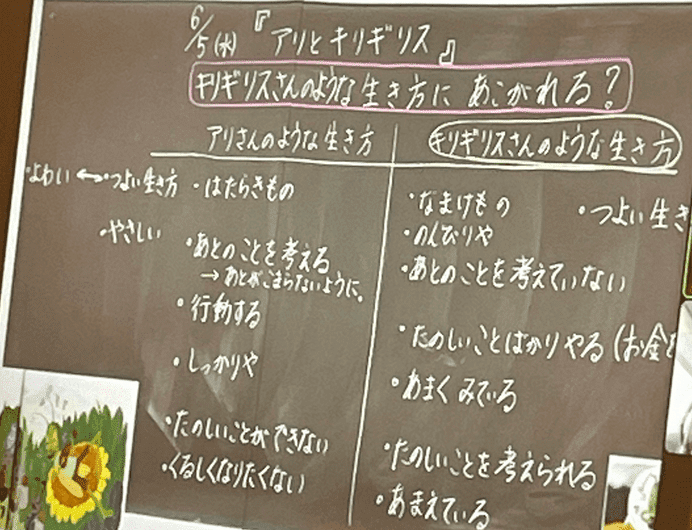 6/5(水)『アリとキリギリス』
キリギリスさんのような生き方にあこがれる?
アリさんのような生き方
・よわい ←→ つよい生き方
・はたらきもの
・やさしい
・あとのことを考える
→ あとがこまらないように。
・行動する
・しっかりや
・たのしいことができない
・くるしくなりたくない
キリギリスさんのような生き方
・なまけもの
・つよい生き
・のんびりや
・あとのことを考えていない
・たのしいことばかりやる(お金
・あまくみている
・たのしいことを考えられる
・あまえている